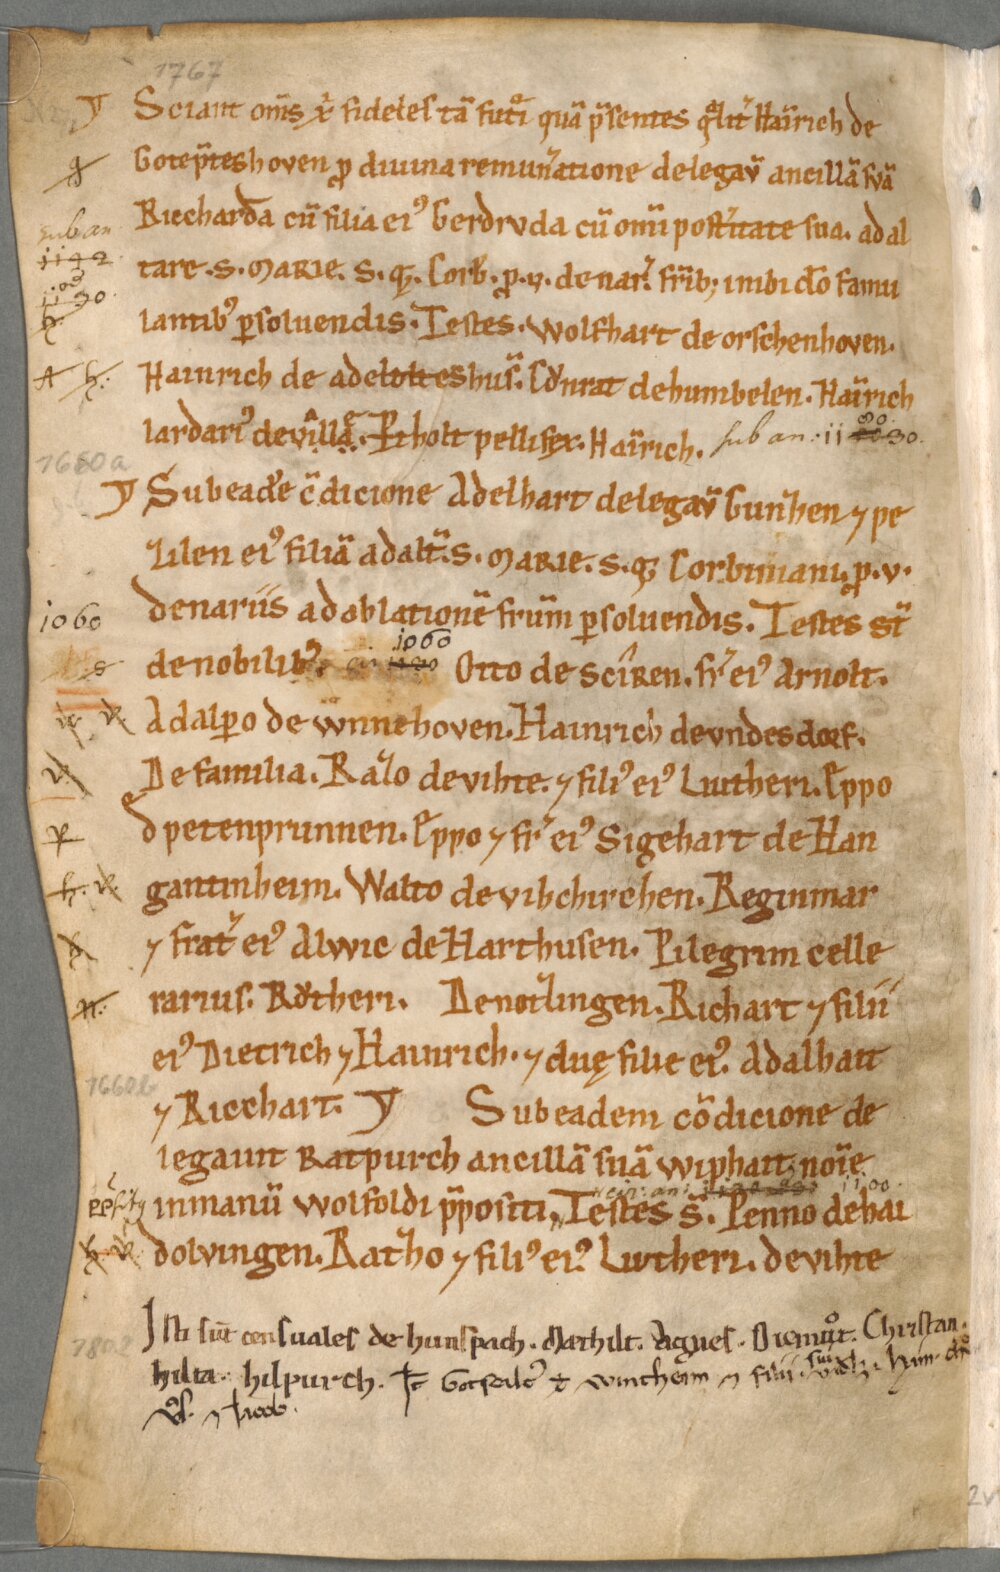 1767
Sciant om̄s x̄ fideles tā futͦi quā p̄sentes qͦlit᷑ Hainrich de
Gotep̄teshoven ꝓ diuina remun᷑atione delegav̄ ancillā suā
Riccharda cū filia eiꝰ Gerdruda cū om̄i post᷑itate sua. ad al
sub an
1142
tare .s. MARIE. s. qꝫ. Corb̄. ꝓ .v. denar᷑. fr̄ib; inibi dō famu
1130.
lantibꝰ ꝑsoluendis. Testes. Wolfhart de orschenhoven.
A h.
Hainrich de adeloltteshus᷑. Cōnrat de humbelen. Hainrich
lardariꝰ de villa. Ptholt pellifex. Hainrich. sub an. 1130.
1660a
Sub eadē c̄dicione Adelhart delegav̄ Gunhen ⁊ pe
zilen eiꝰ filiā ad alt᷑. s. MARIE. s. qꝫ Corbiniani. ꝓ .v.
1060
denariis ad ablationē fr̄um ꝑsoluendis. Testes st̄
1060
de nobilibꝰ. Otto de sciren. fr᷑ eiꝰ Arnolt.
Adalꝑo de wnnehoven. Hainrich de undesdorf.
De familia. Razo de vihte. ⁊ filiꝰ eiꝰ Lutheri. Eppo
d petenprunnen. Eppo ⁊ fr᷑ eiꝰ Sigehart de Han
gantinheim. Walto de vibchirchen. Reginmar
⁊ frat᷑ eiꝰ Alwic de Harthusen. Pilegrim celle
rarius. Rͦtheri. De notzlingen. Richart ⁊ filii
eiꝰ Dietrich ⁊ Hainrich. ⁊ duę filie eiꝰ. Adalhait
1660b
⁊ Ricchart. Sub eadem cōdicione de
legaunt Ratpurch ancillā suā wiphait noīe
1100.
in manū Wolfoldi p̄positi. Testes s̄. Penno de hai
dolvingen. Ratho ⁊ filiꝰ eiꝰ Lutheri. de vihte
1802
Isti sūt censuales de hunspach. Mathilt. Agnes. Diemͦt. Christan.
hilta. hilpurch. Gotscalcꝰ ⁊ wintheim ⁊ filii sui
⁊ Jacob.
2v